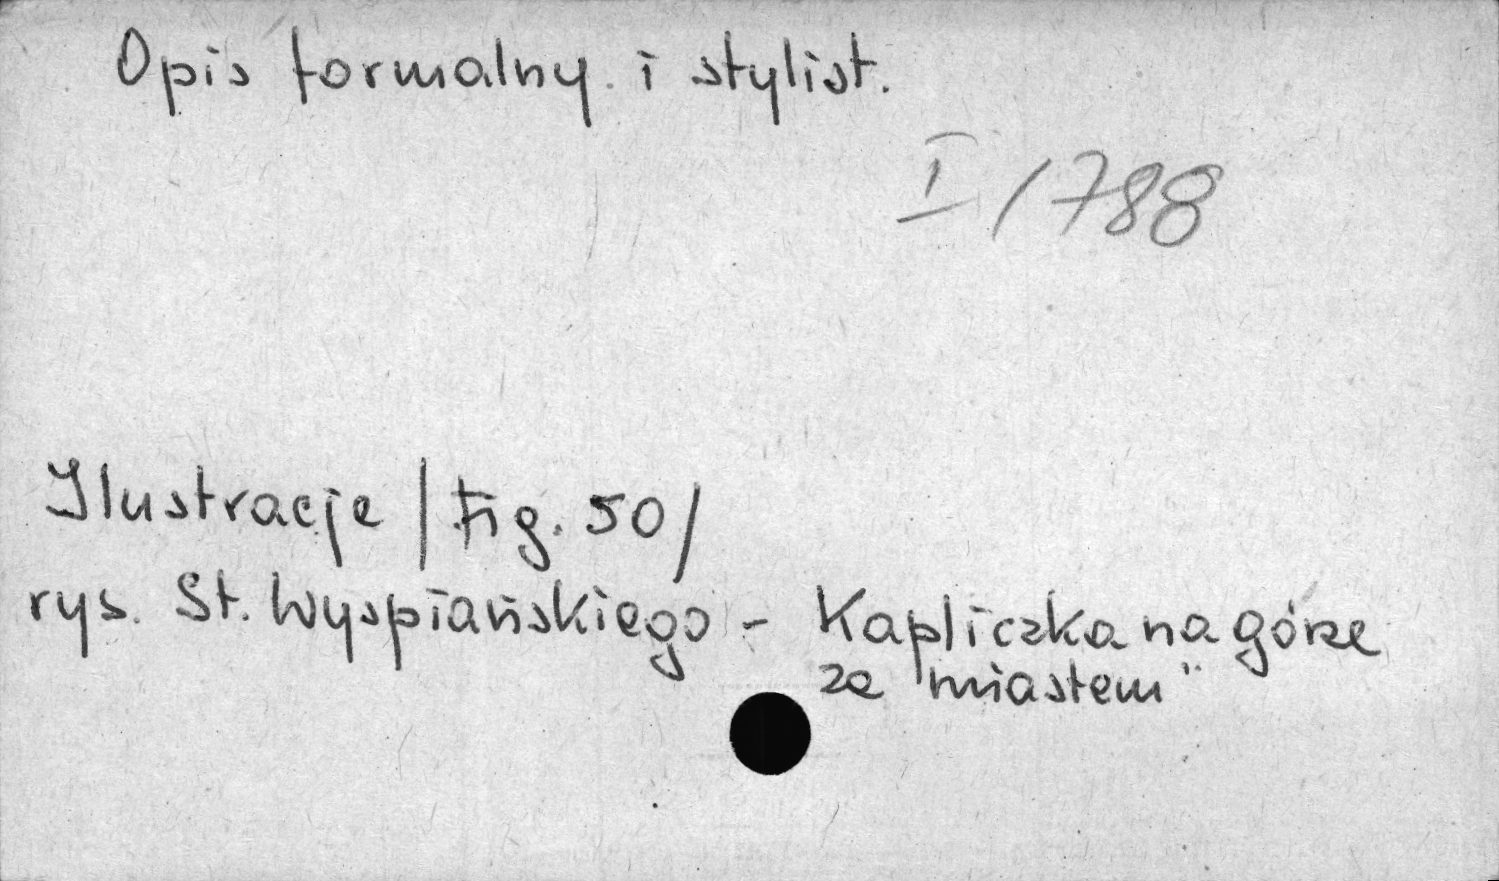 Opis formalny i stylist.
I/788
Ilustracje /Fig. 50/
rys. St. Wyspiańskiego - Kapliczka na górze
za "miastem"